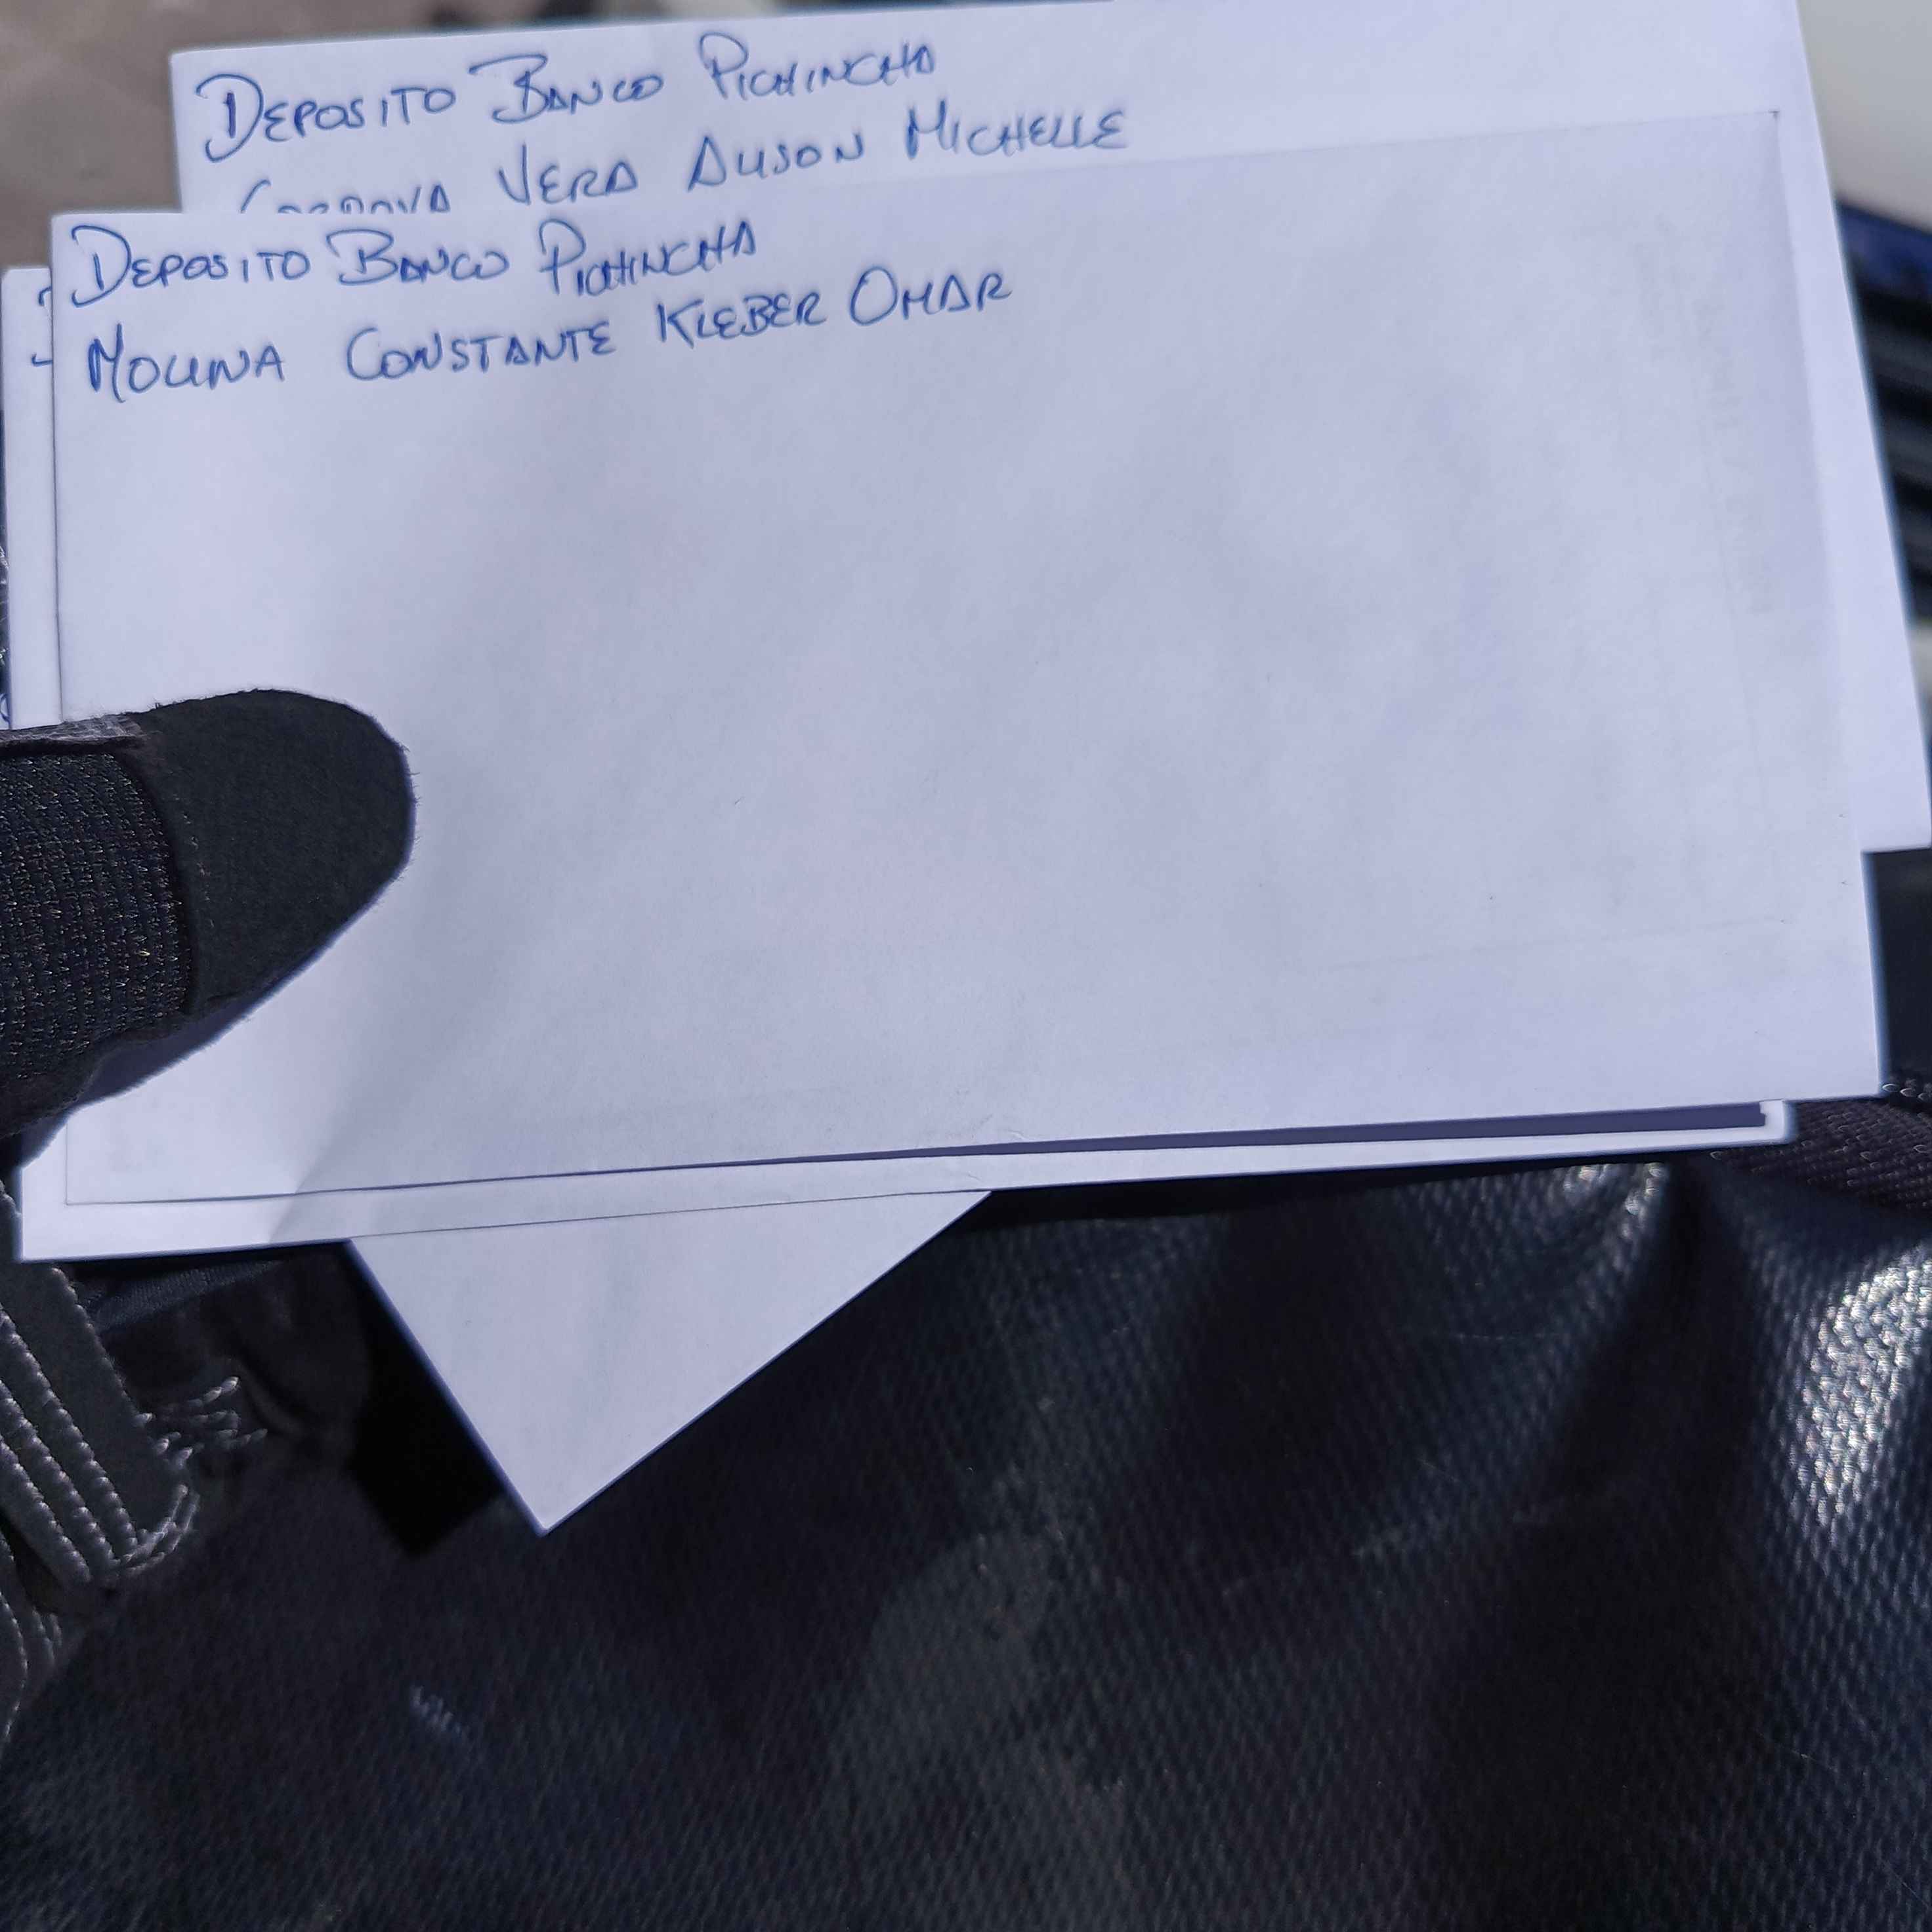 DEPOSITO BANCO PICHINCHA
CORDOVA VERA ALISON MICHELLE
DEPOSITO BANCO PICHINCHA
MOLINA CONSTANTE KLEBER OMAR